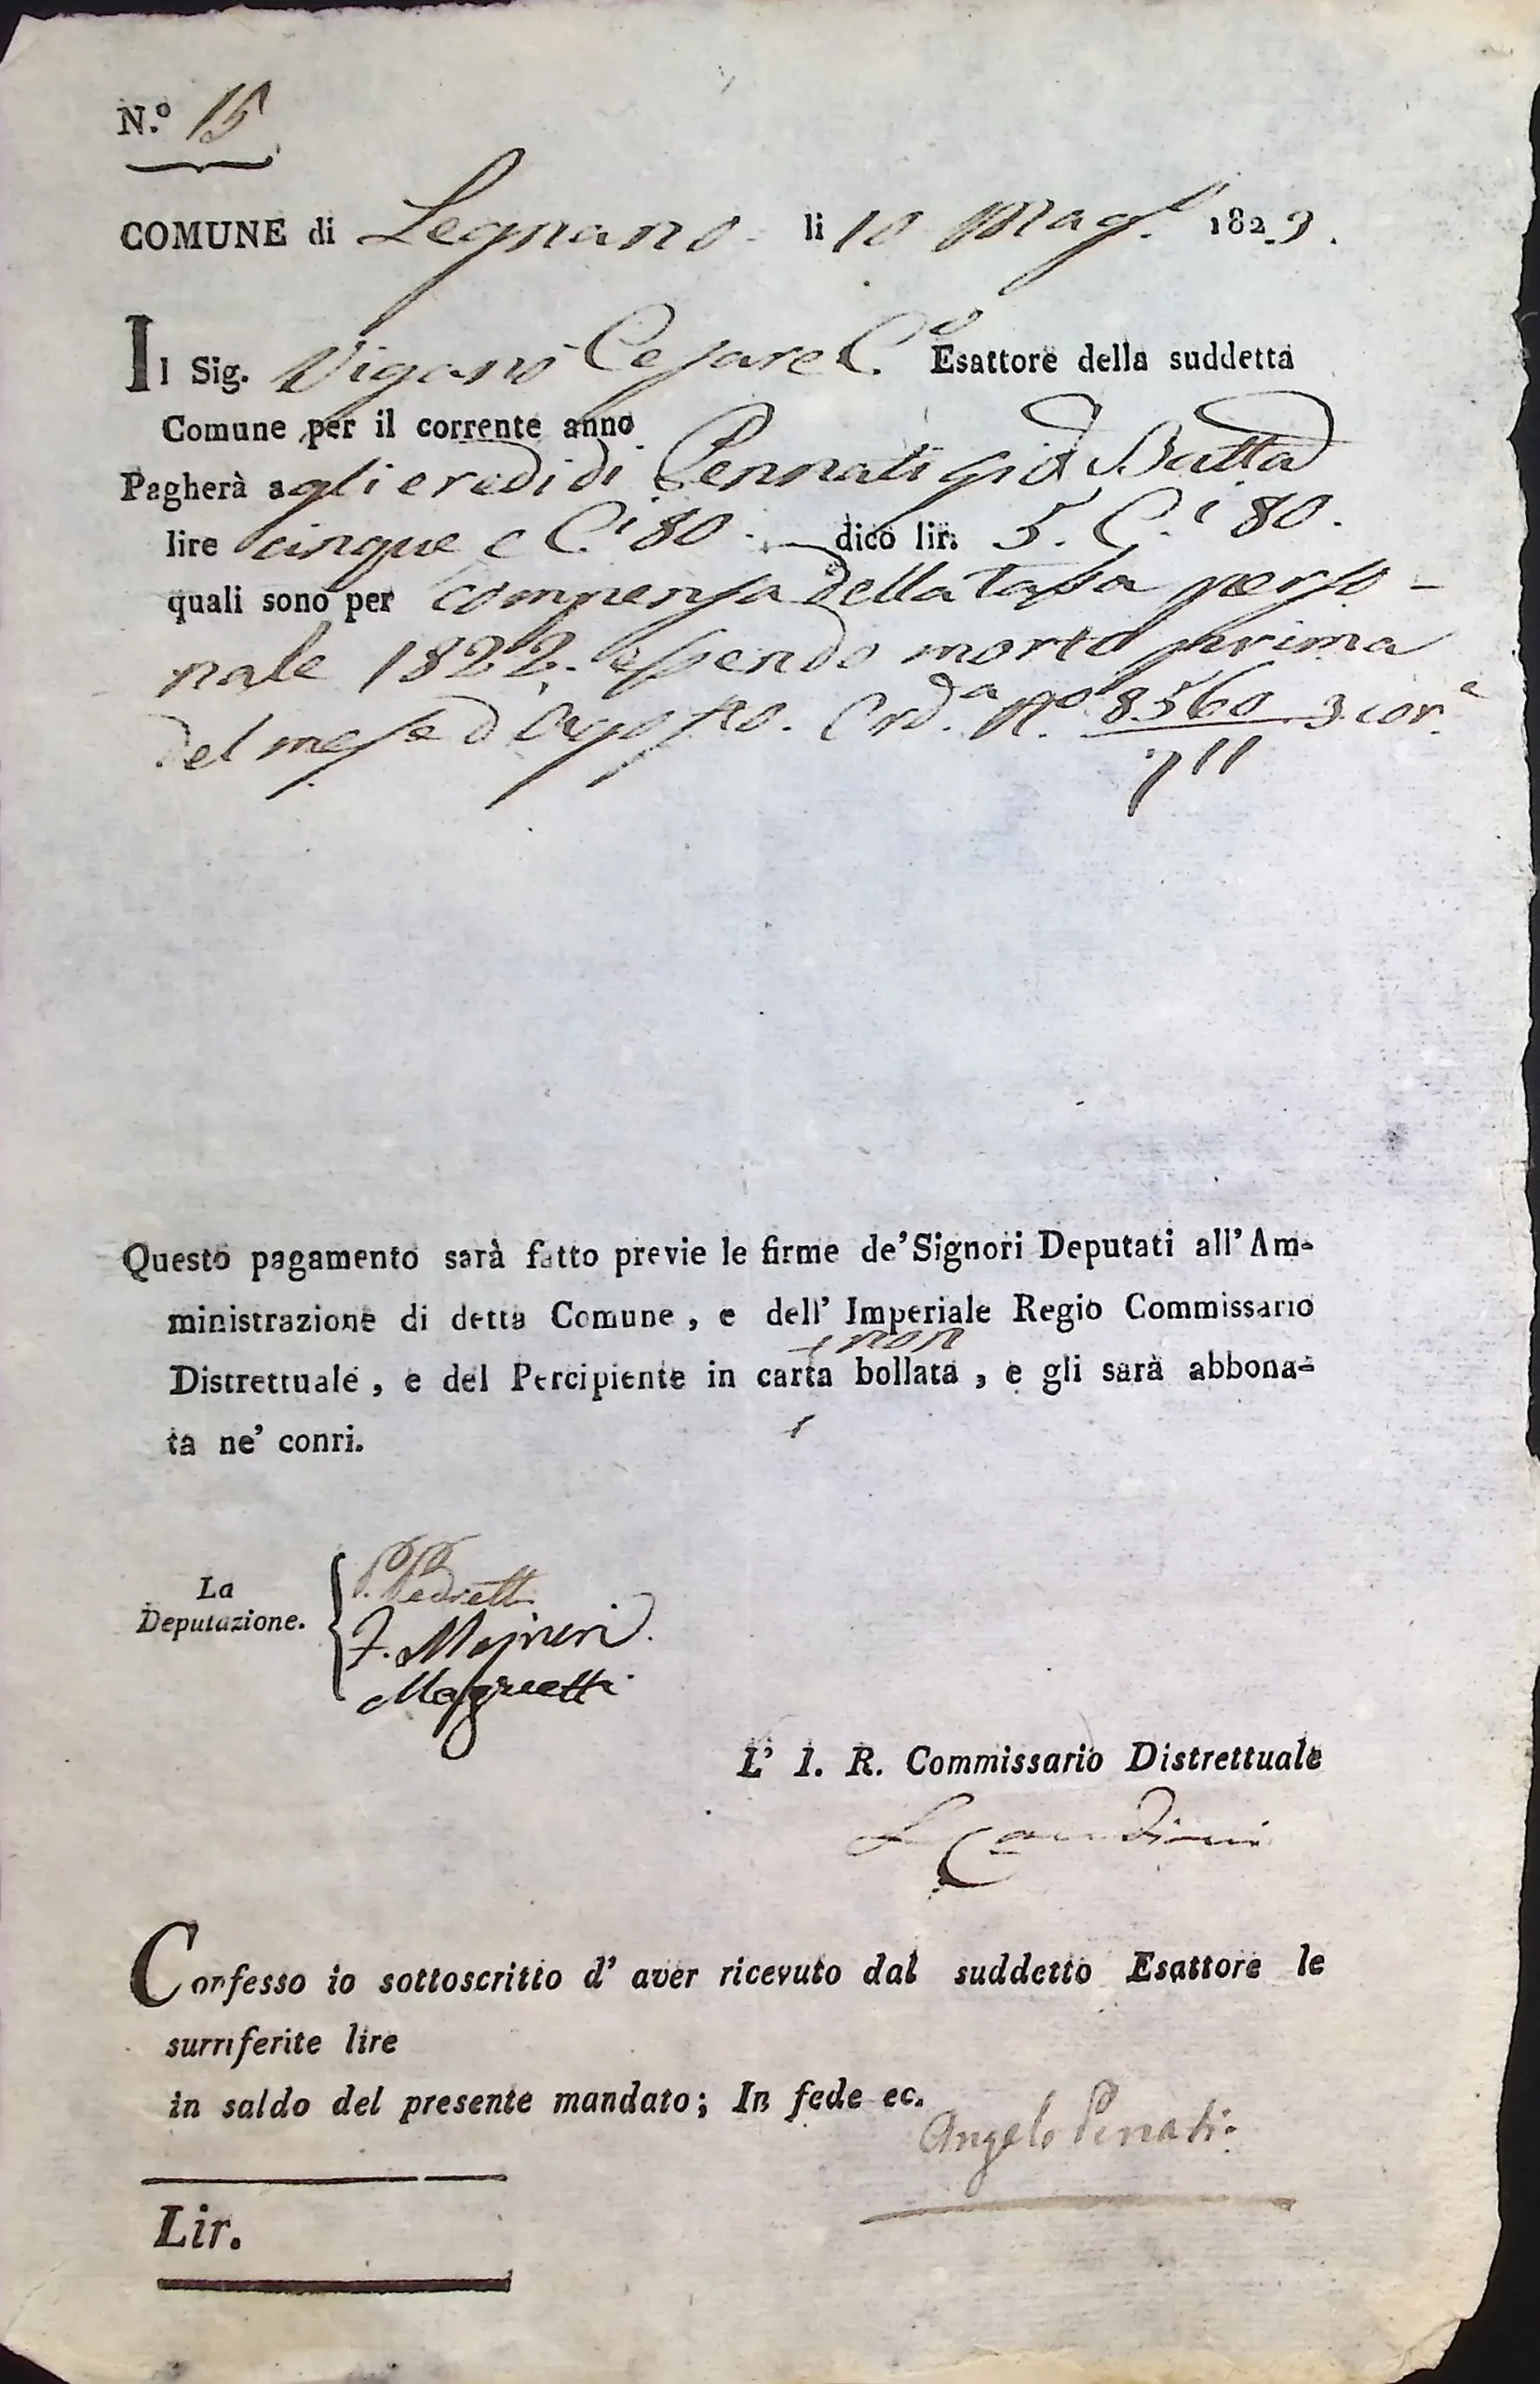 N.º 15
COMUNE di Legnano li 10 Magº 1823.
Il Sig. Viganò Cesare C.º Esattore della suddetta
Comune per il corrente anno
Pagherà agli eredi di Pennati Giō Batta
lire cinque e C.i 80. dico lir. 5. C.i 80.
quali sono per compensa della tassa perso-
nale 1822. essendo morto prima
del mese d'Agosto. Ord.a N.º 8560/711 3 cor.e
Questo pagamento sarà fatto previe le firme de' Signori Deputati all' Am-
ministrazione di detta Comune, e dell' Imperiale Regio Commissario
non
Distrettuale, e del Percipiente in carta bollata, e gli sarà abbona-
ta ne' conri.
La
Deputazione.
P. Pedretti
F. Mainini.
Magnetti
L' I. R. Commissario Distrettuale
Confesso io sottoscritto d' aver ricevuto dal suddetto Esattore le
surriferite lire
in saldo del presente mandato; In fede ec.
Angelo Penati.
Lir.